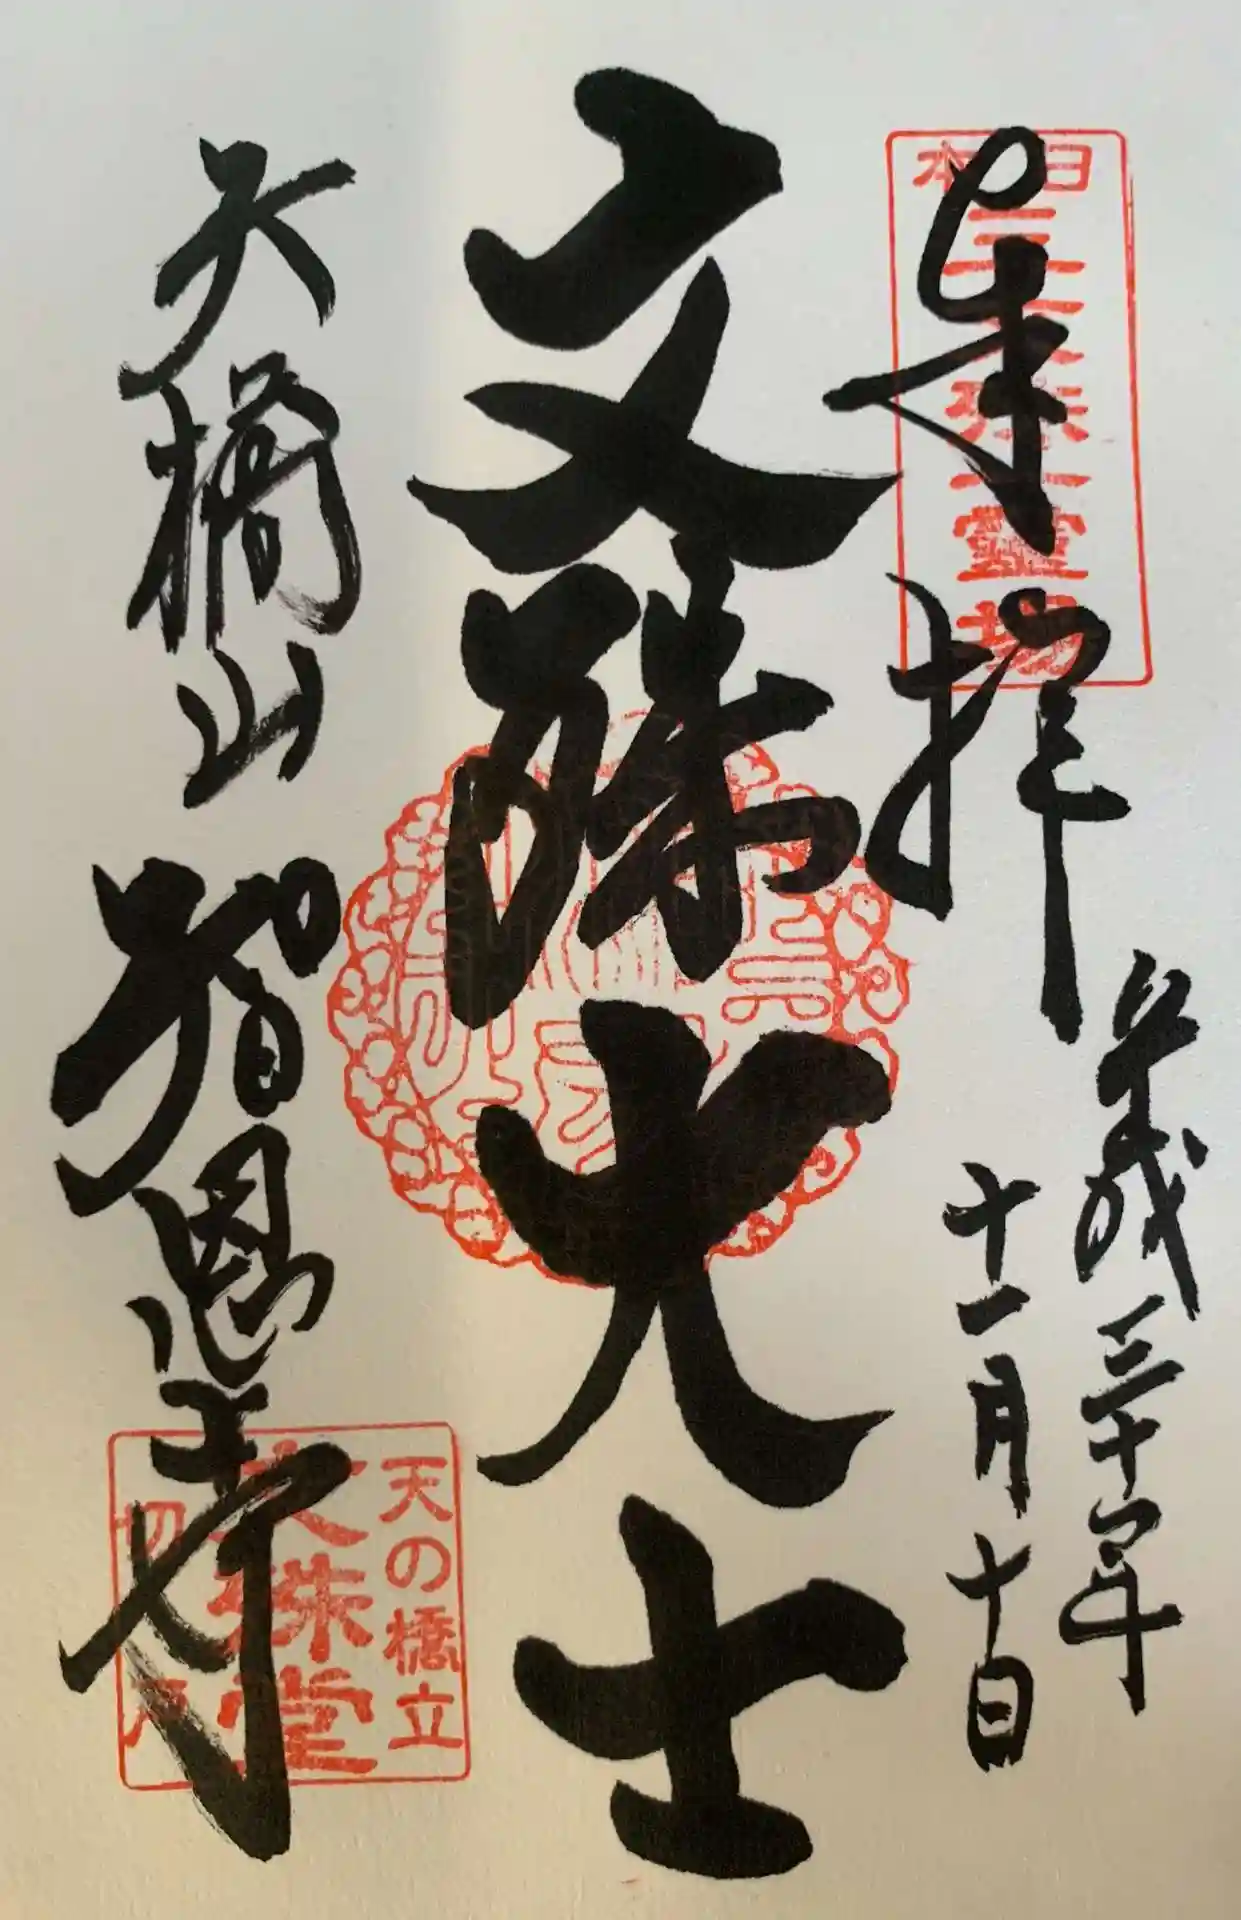 奉拝
日本三文殊第一霊場
平成三十年
十一月十日
文殊大士
天橋山
智恩寺
天の橋立
文殊堂
切戸